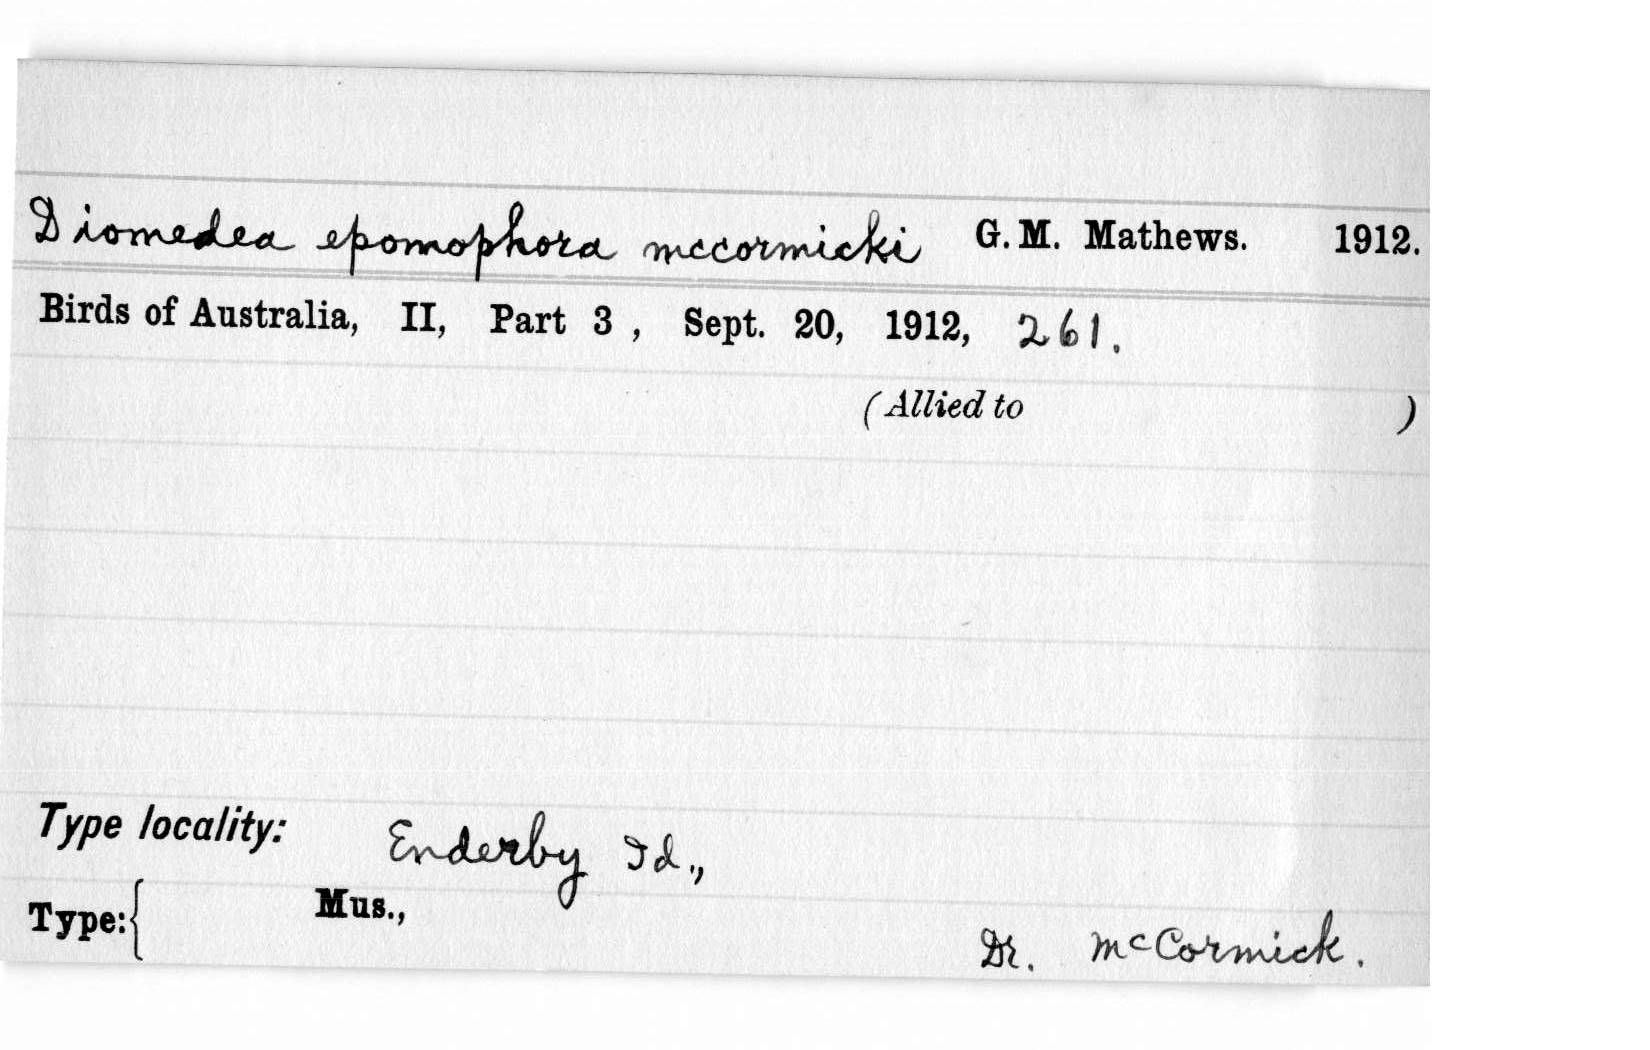 Diomedea epomophora mccormicki G. M. Mathews. 1912.
Birds of Australia, II, Part 3 , Sept. 20, 1912, 261.
(Allied to )
Type locality: Enderby Id.,
Type:{ Mus.,
Dr. McCormick.